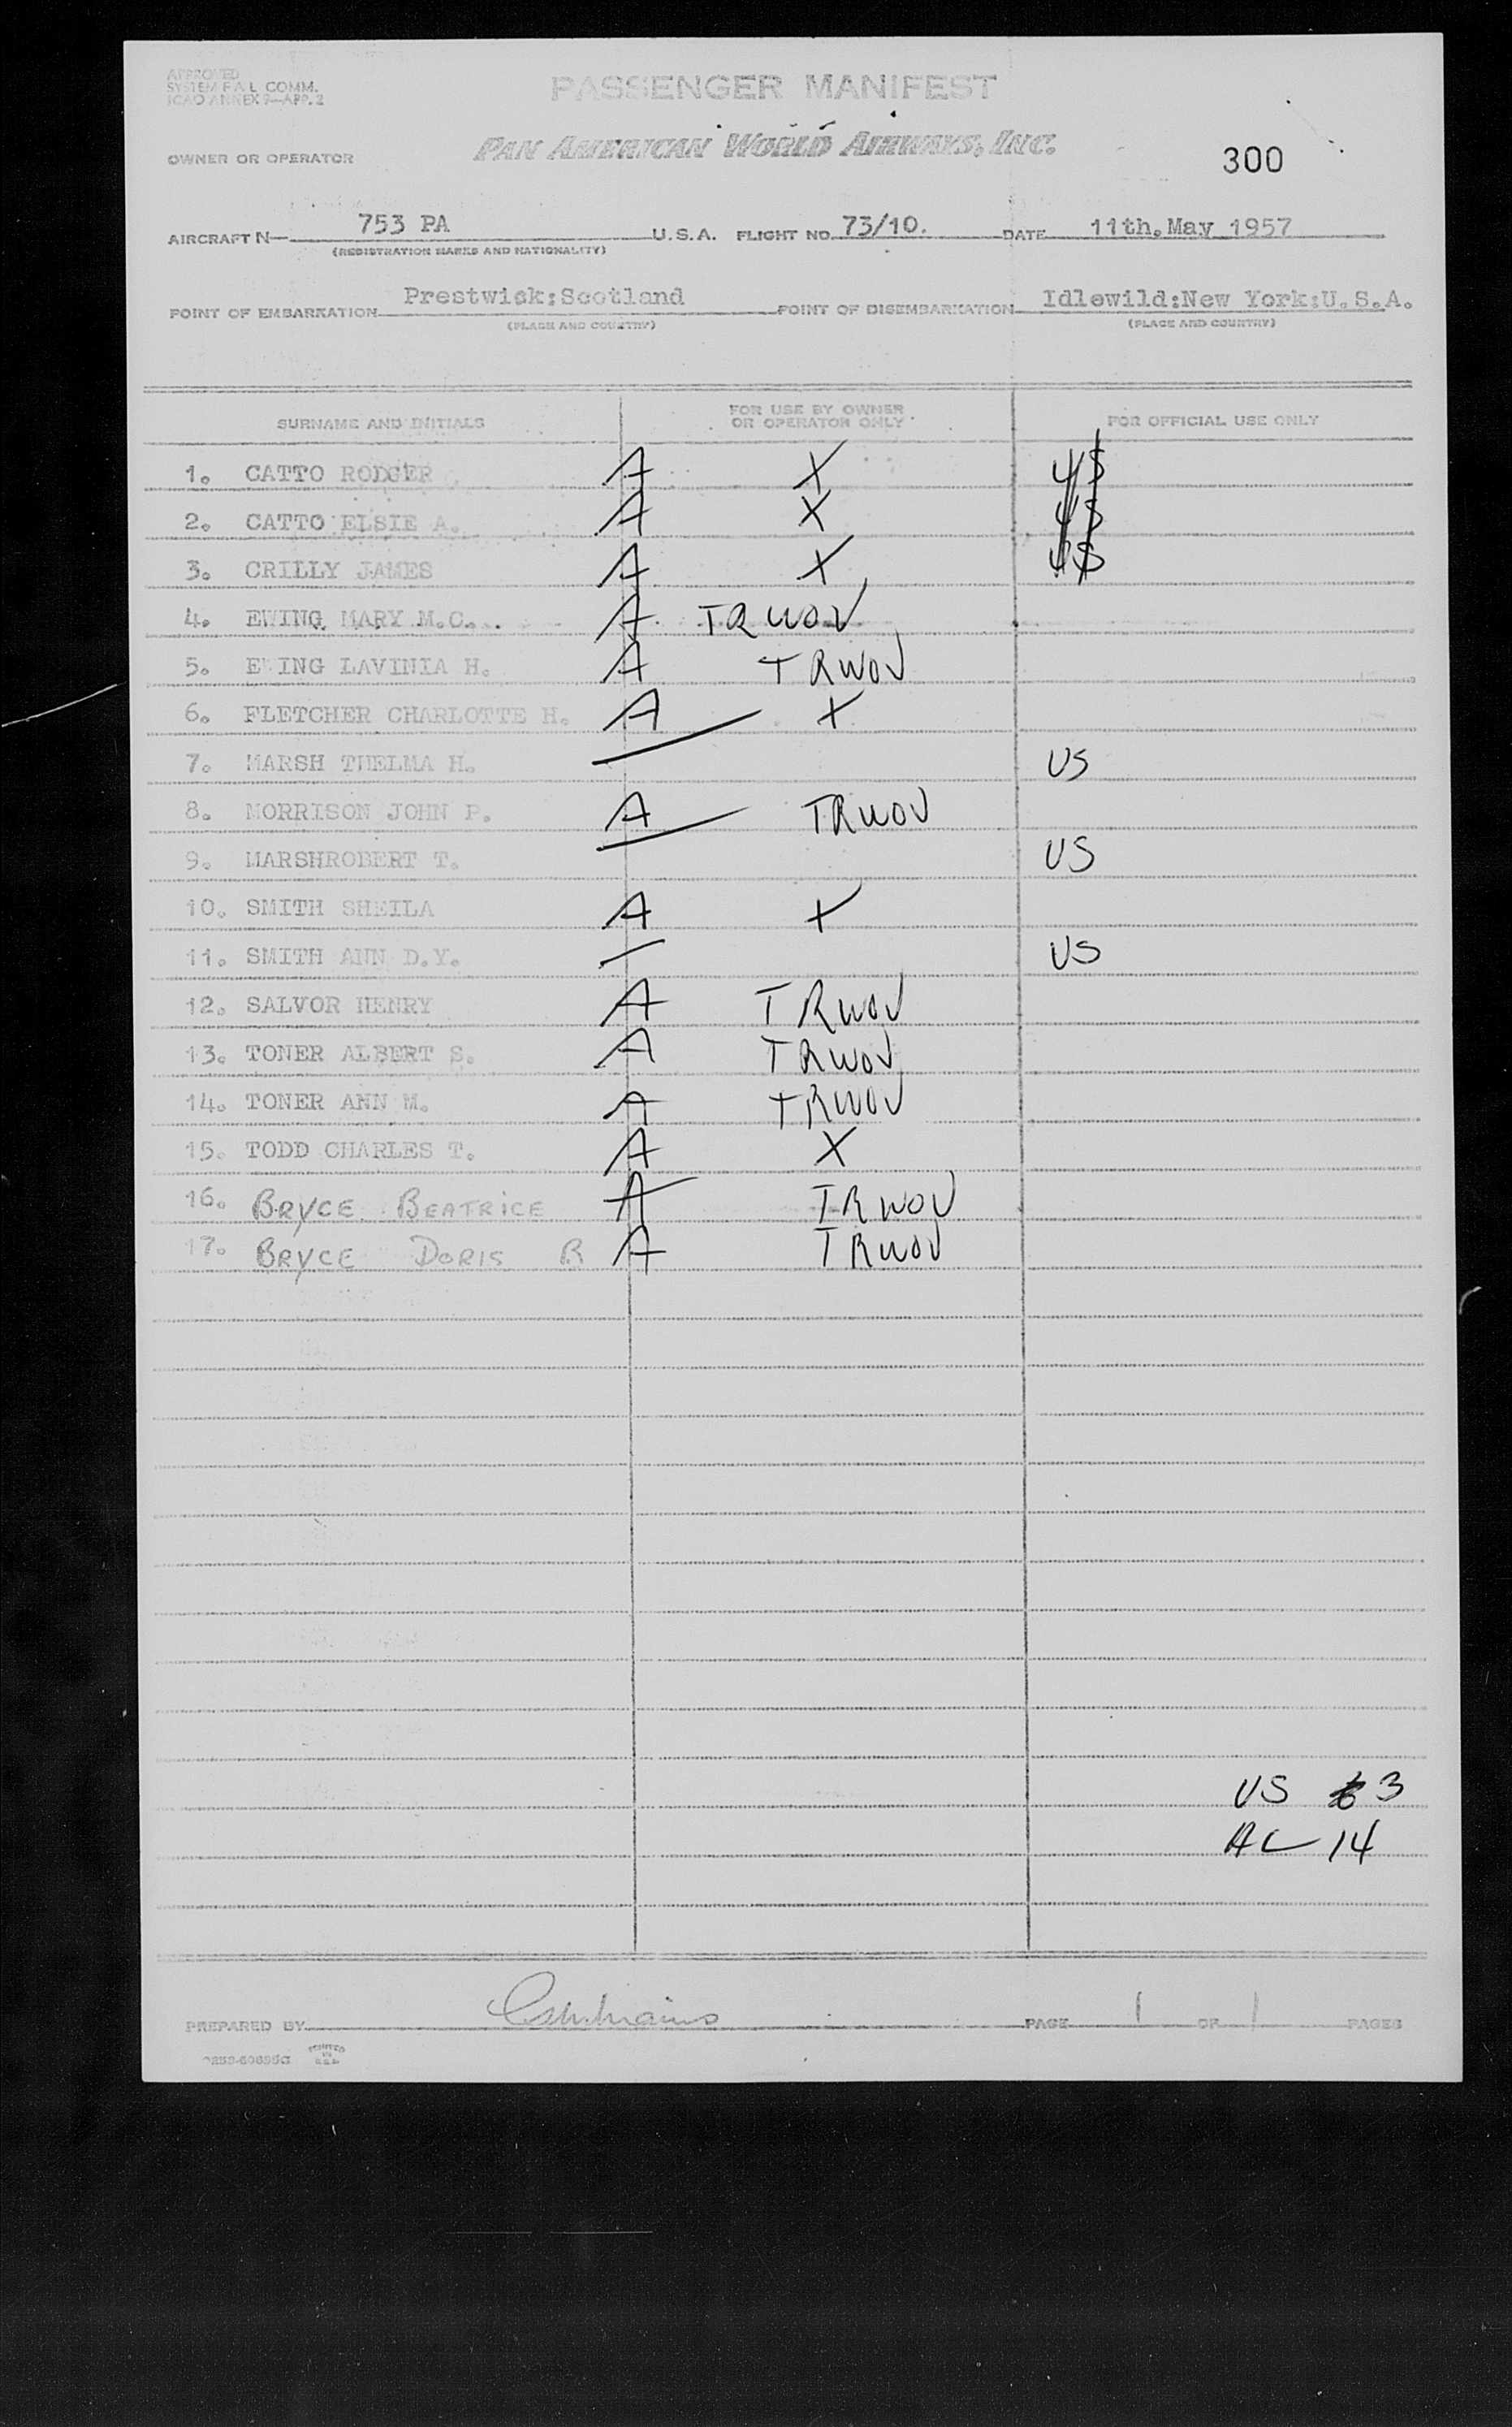 APPROVED
SYSTEM F A L COMM.
ICAO ANNEX 9—APP. 2
PASSENGER MANIFEST
OWNER OR OPERATOR PAN AMERICAN WORLD AIRWAYS, INC.
300
AIRCRAFT N— 753 PA U.S.A. FLIGHT NO. 73/10. DATE 11th.May 1957
(REGISTRATION MARKS AND NATIONALITY)
POINT OF EMBARKATION Prestwick:Scotland POINT OF DISEMBARKATION Idlewild:New York:U.S.A.
(PLACE AND COUNTRY) (PLACE AND COUNTRY)
SURNAME AND INITIALS FOR USE BY OWNER OR OPERATOR ONLY FOR OFFICIAL USE ONLY
1. CATTO RODGER A X US
2. CATTO ELSIE A. A X US
3. CRILLY JAMES A X US
4. EWING MARY M.C. A TRWOV
5. EWING LAVINIA H. A TRWOV
6. FLETCHER CHARLOTTE H. A X
7. MARSH THELMA H. — US
8. MORRISON JOHN P. A TRWOV
9. MARSHROBERT T. — US
10. SMITH SHEILA A X
11. SMITH ANN D.Y. — US
12. SALVOR HENRY A TRWOV
13. TONER ALBERT S. A TRWOV
14. TONER ANN M. A TRWOV
15. TODD CHARLES T. A X
16. BRYCE BEATRICE A TRWOV
17. BRYCE DORIS R A TRWOV
US 6 3
AL 14
PREPARED BY PAGE 1 OF 1 PAGES
PRINTED IN U.S.A.